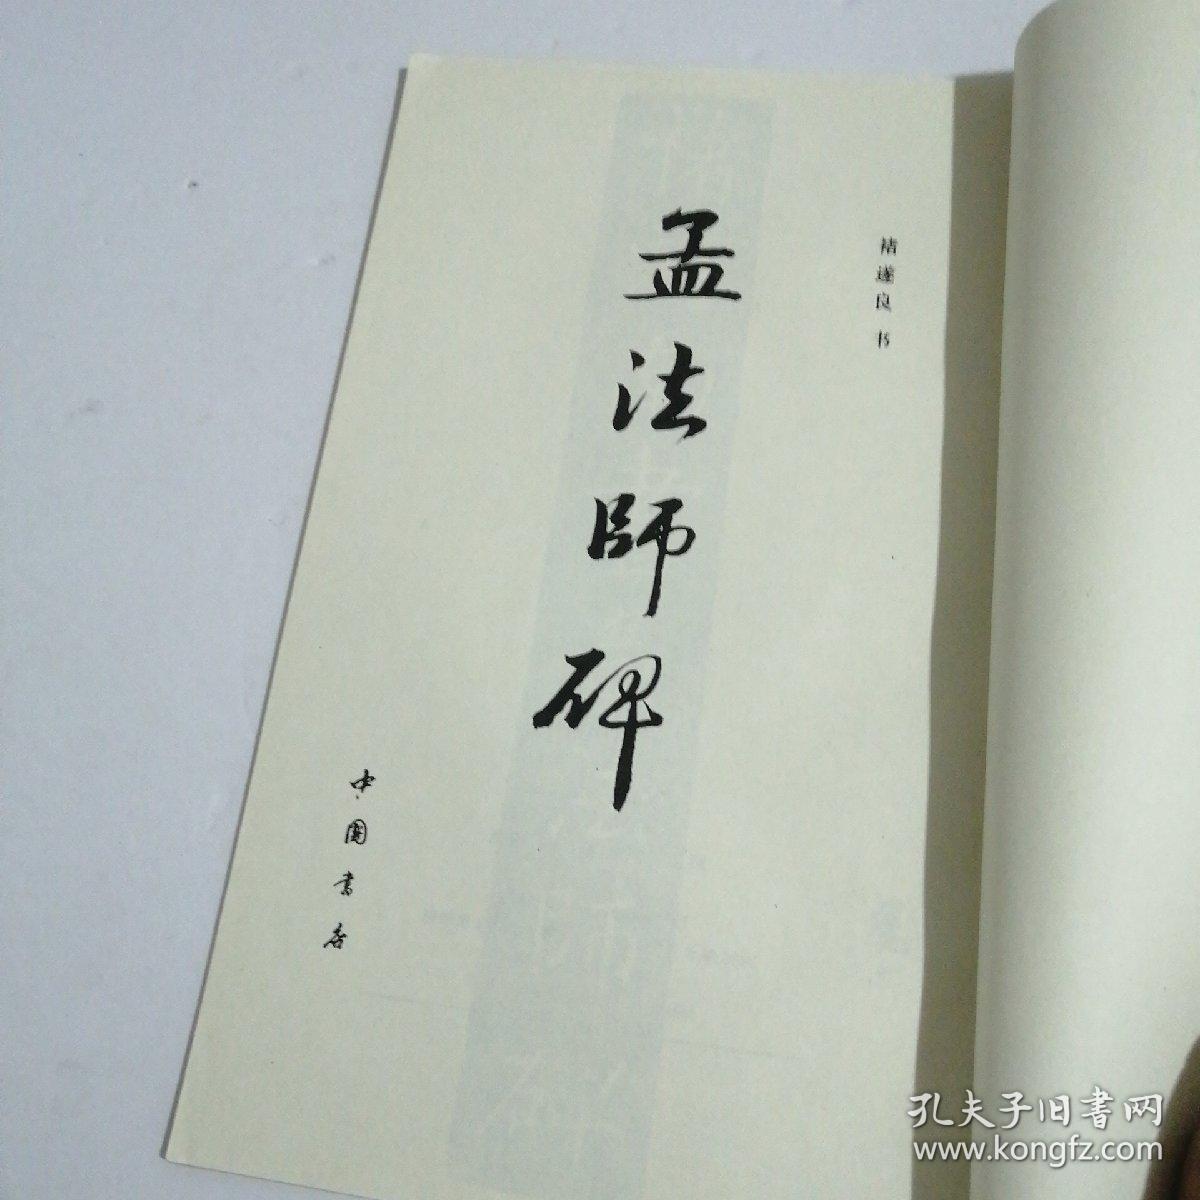 褚遂良书
孟法師碑
中國書店
孔夫子旧書网
www.kongfz.com